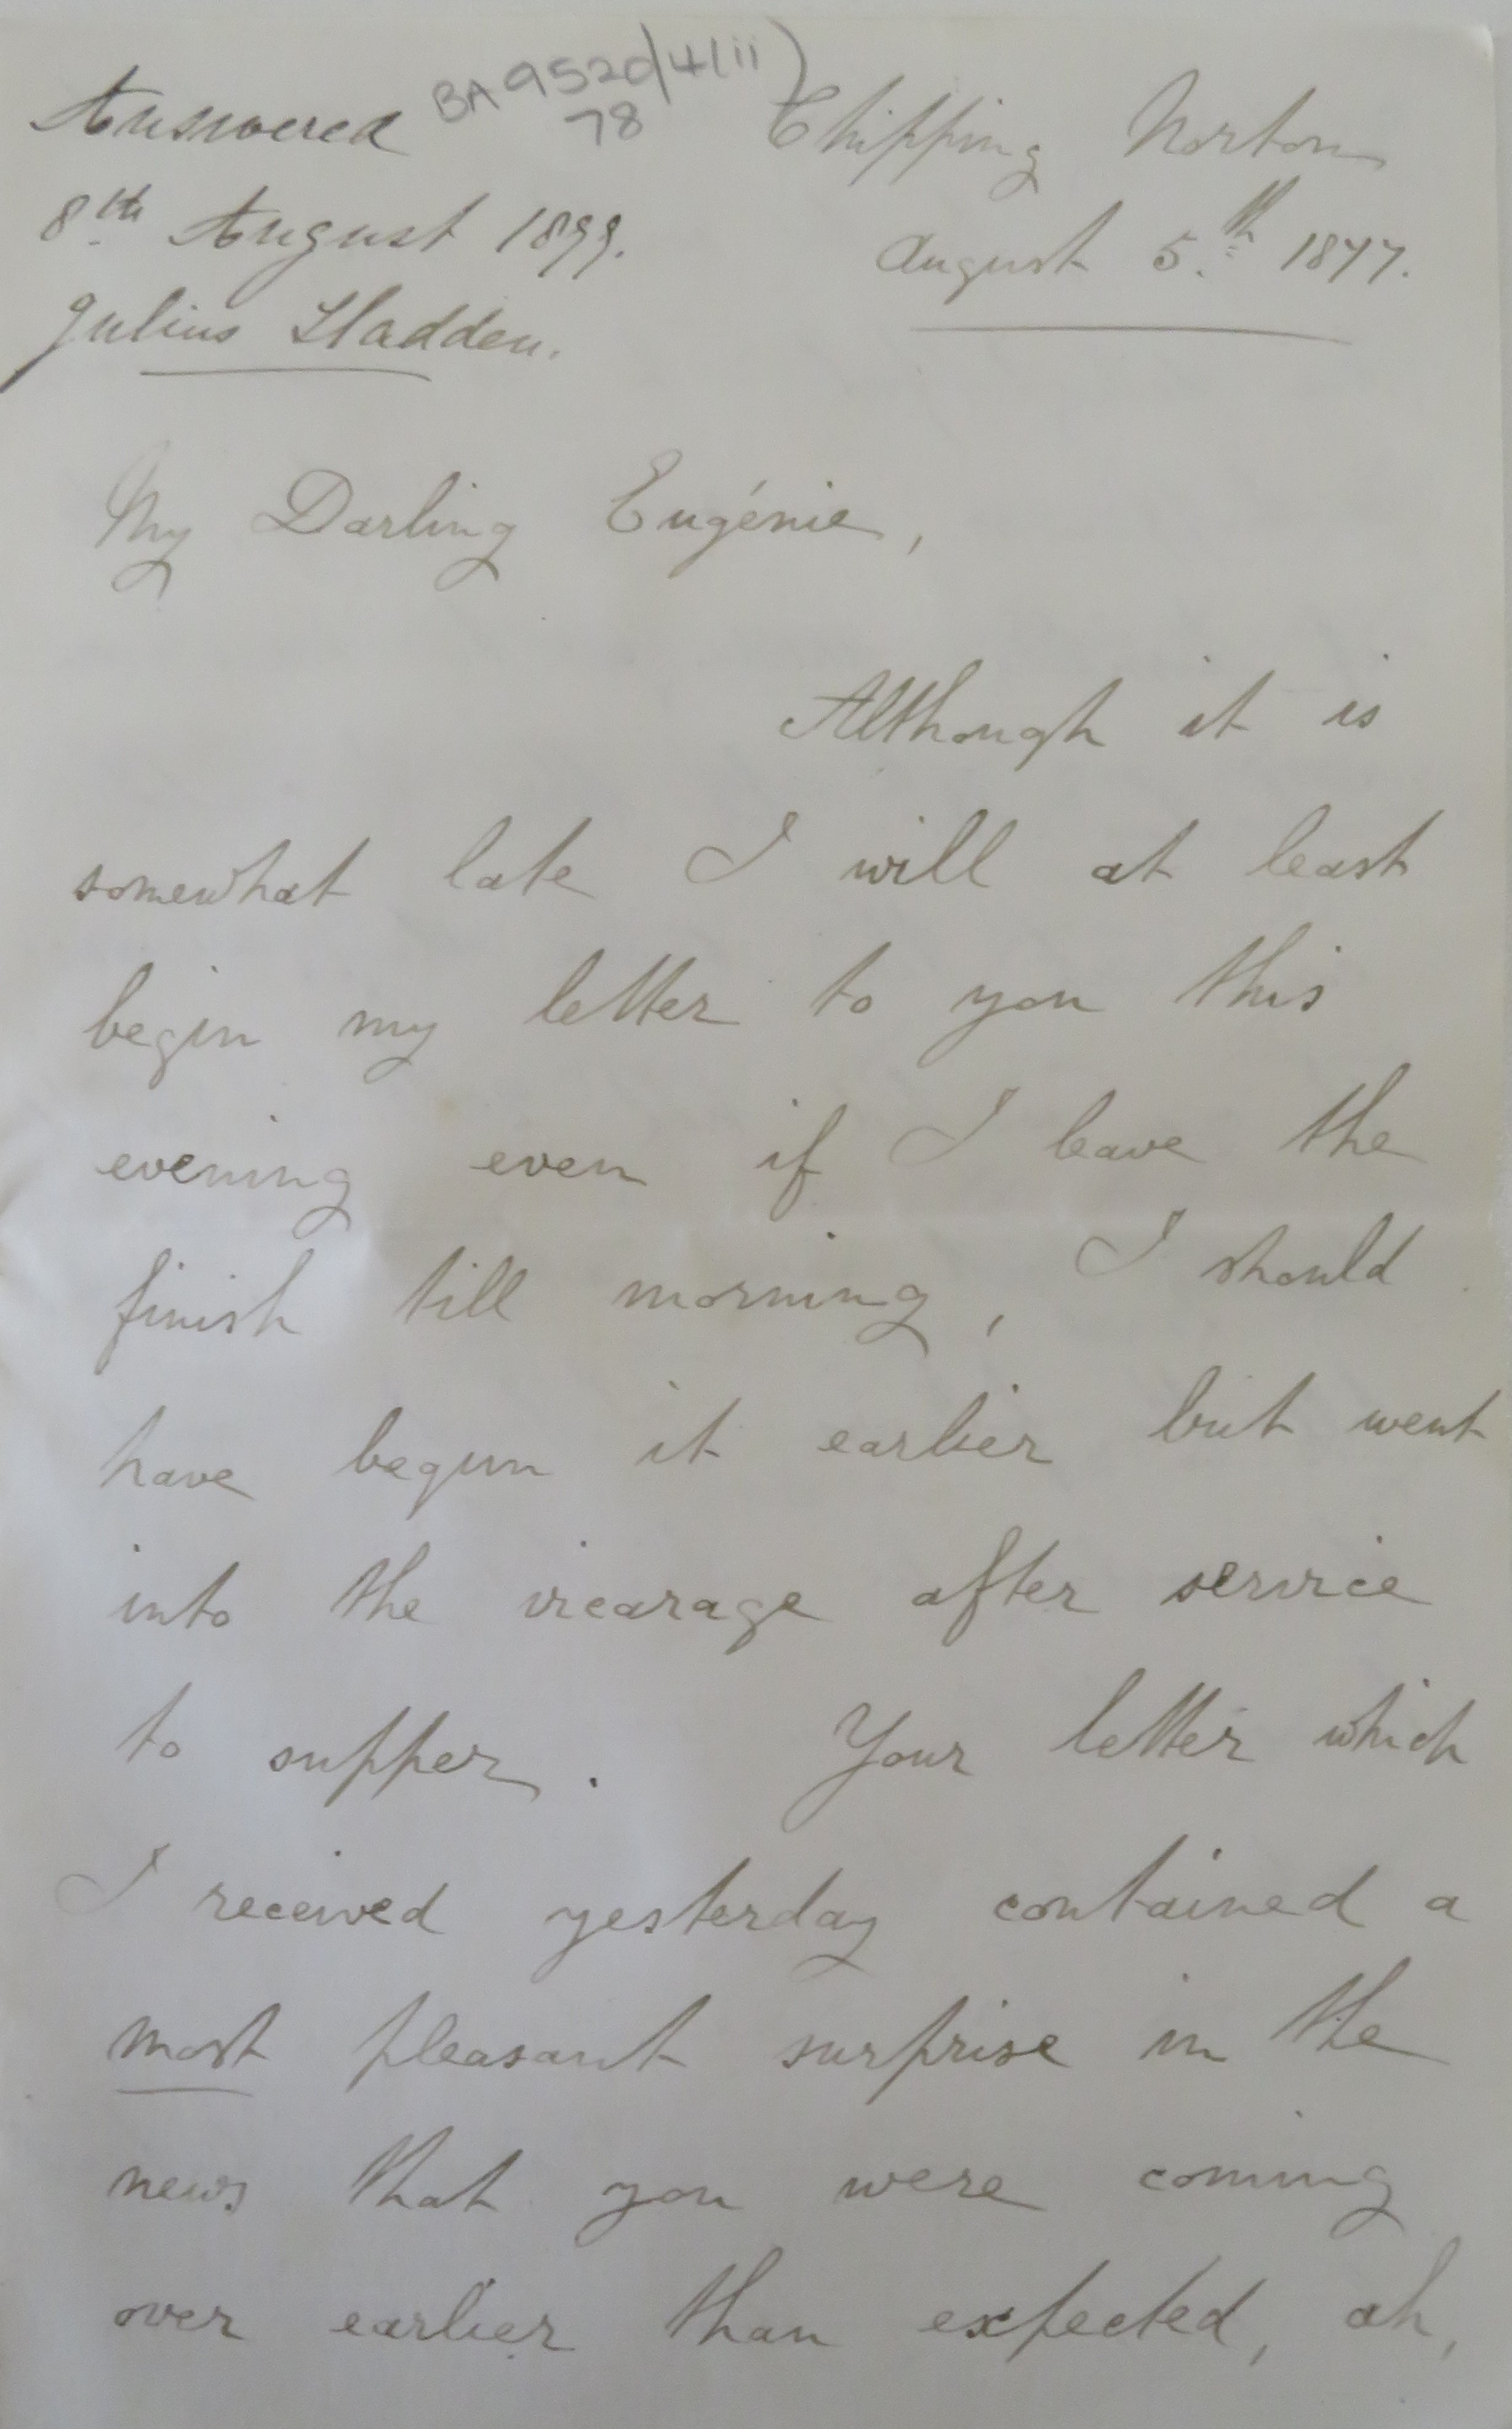 BA 9520/4(ii)
78
Answered
8th August 1877.
Julius Sladden.
Chipping Norton
August 5th 1877.
My Darling Eugénie,
Although it is
somewhat late I will at least
begin my letter to you this
evening even if I leave the
finish till morning, I should
have begun it earlier but went
into the vicarage after service
to supper. Your letter which
I received yesterday contained a
most pleasant surprise in the
news that you were coming
over earlier than expected, ah,